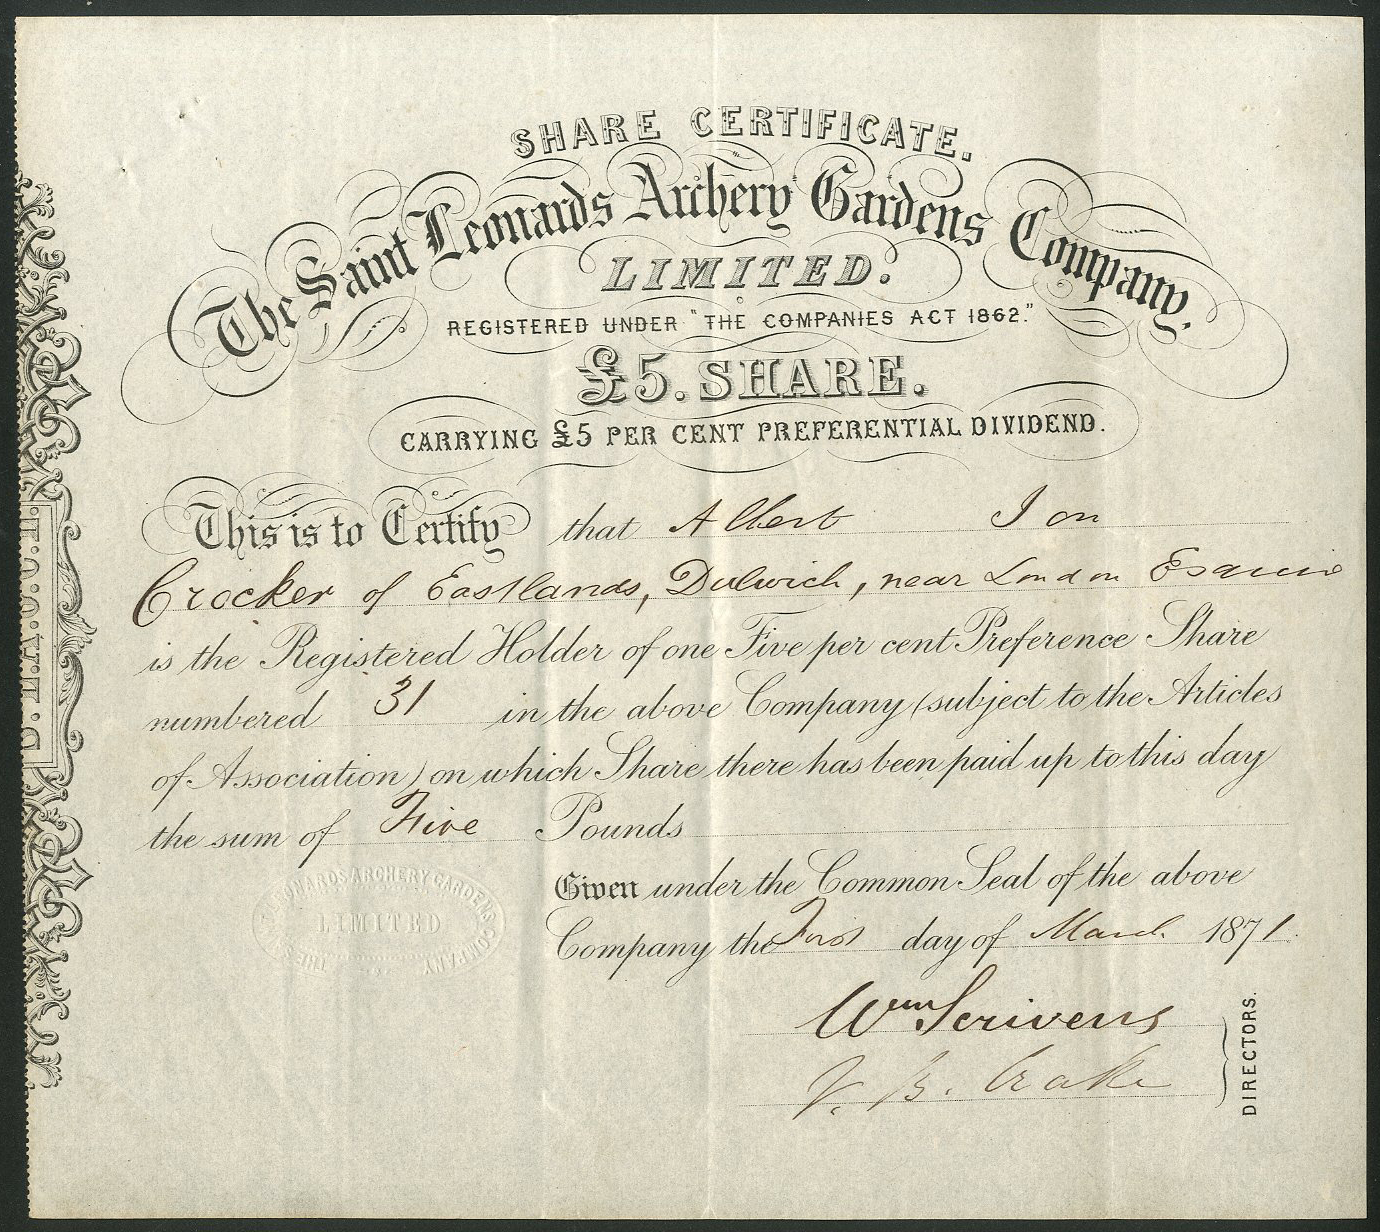 SHARE CERTIFICATE.
The Saint Leonards Archery Gardens Company,
LIMITED.
REGISTERED UNDER "THE COMPANIES ACT 1862."
£5. SHARE.
CARRYING £5 PER CENT PREFERENTIAL DIVIDEND.
This is to Certify that Albert Ion
Crocker of Eastlands, Dulwich, near London Esquire
is the Registered Holder of one Five per cent Preference Share
numbered 31 in the above Company (subject to the Articles
of Association) on which Share there has been paid up to this day
the sum of Five Pounds
Given under the Common Seal of the above
Company the First day of March 1871.
LEONARDS ARCHERY GARDENS COMPANY
LIMITED
Wm Scrivens
J. B. Crake
DIRECTORS.